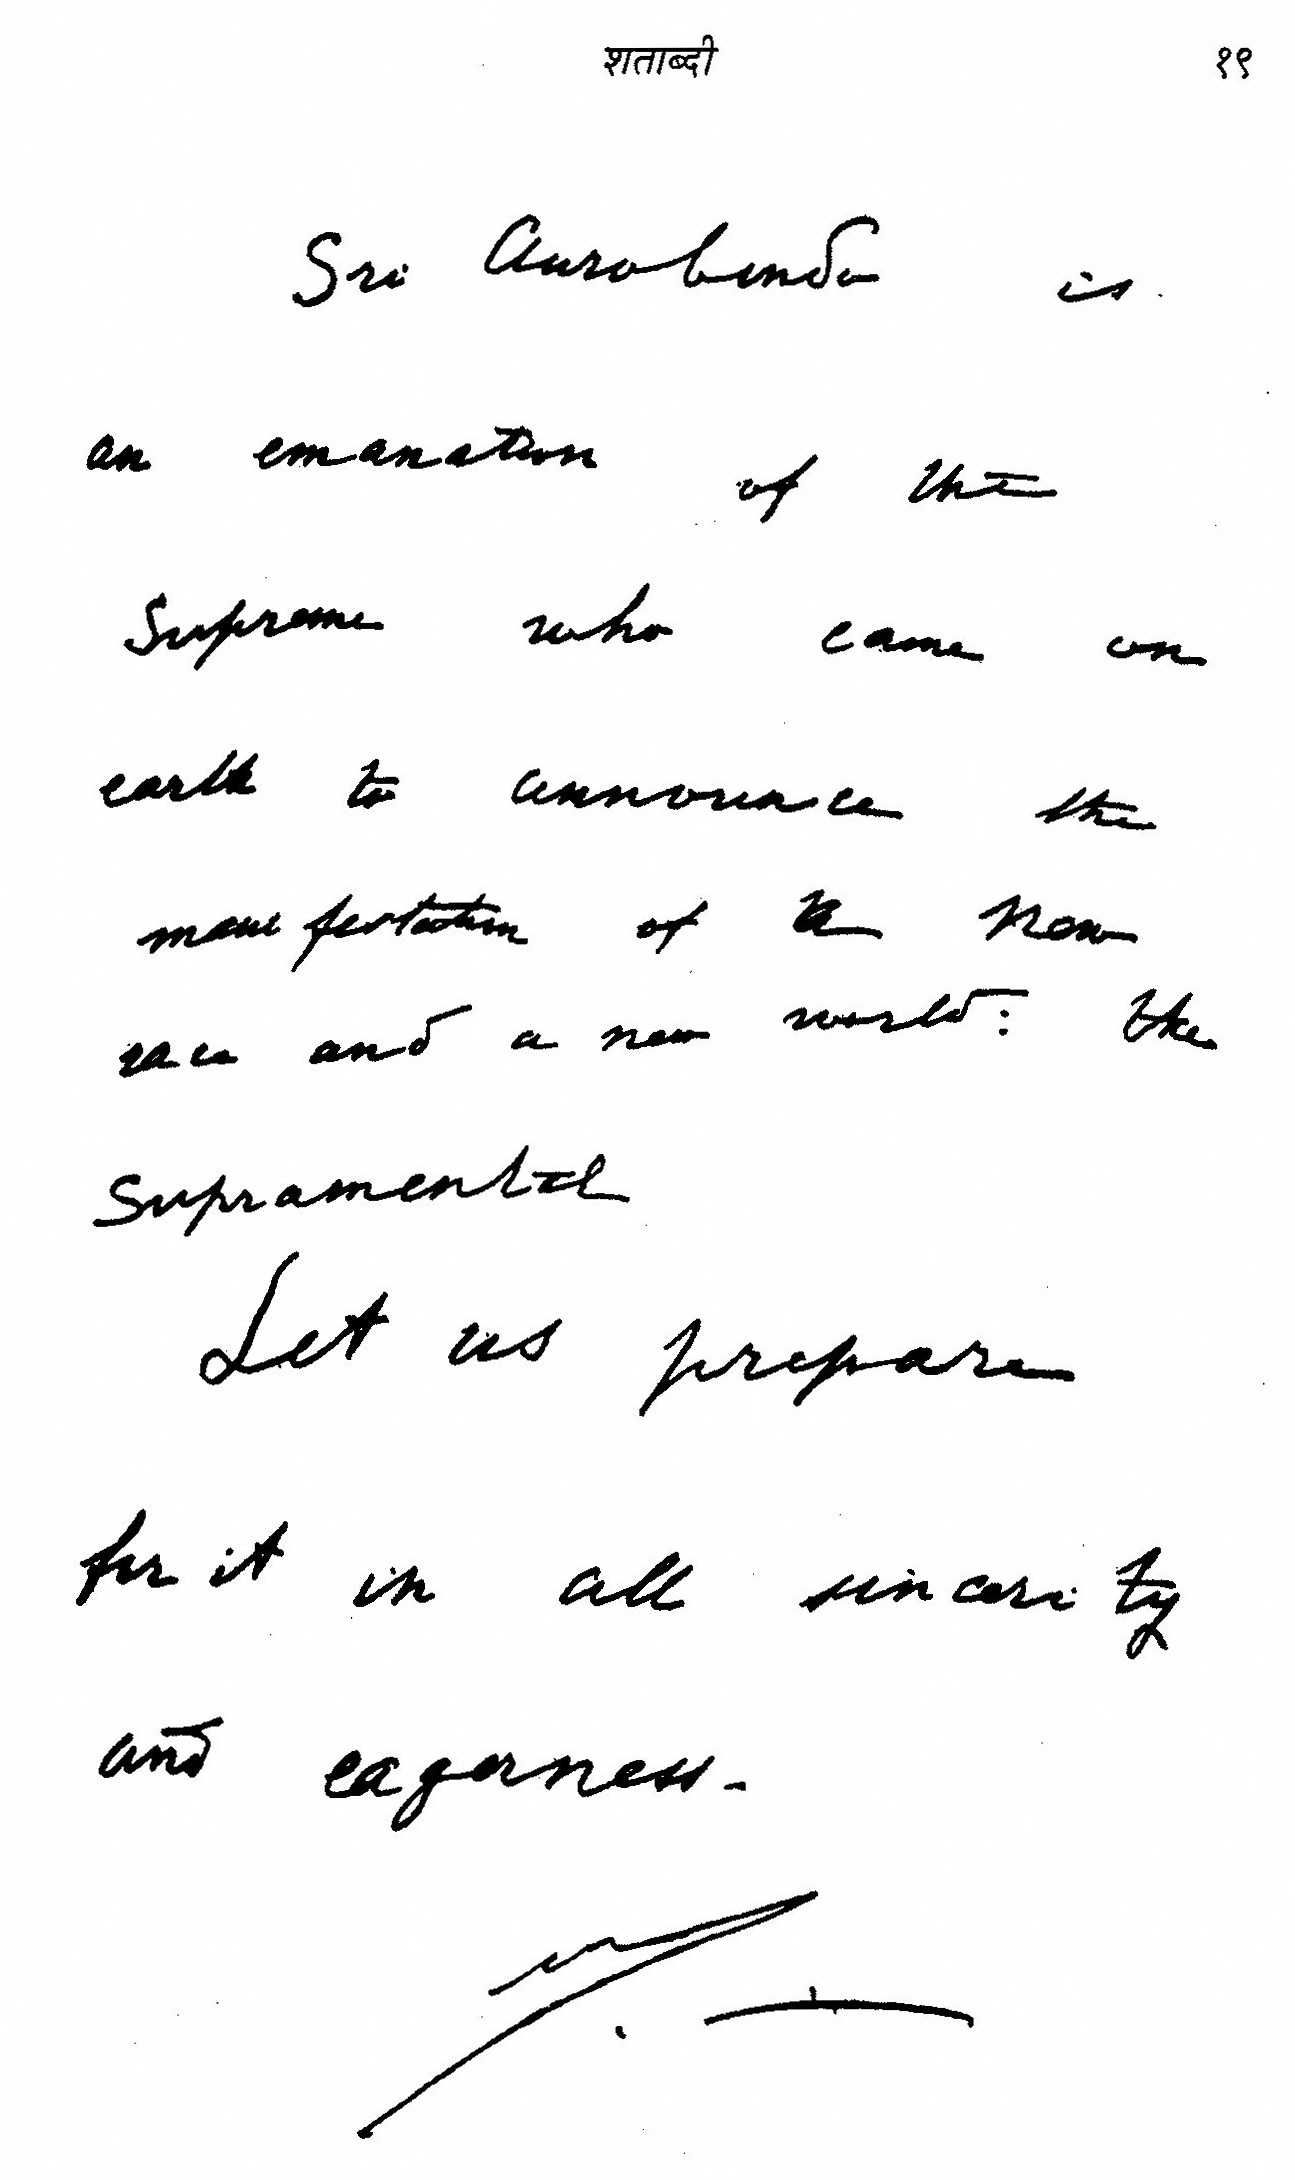 शताब्दी १९
Sri Aurobindo is
an emanation of the
Supreme who came on
earth to announce the
manifestation of a new
race and a new world: the
Supramental
Let us prepare
for it in all sincerity
and eagerness.